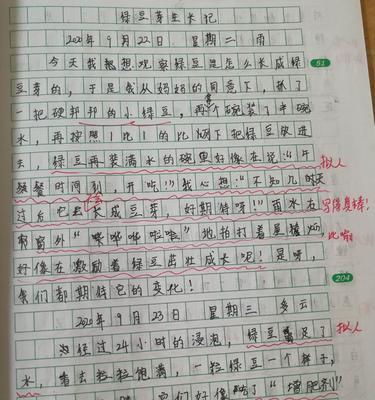 绿豆芽生长记
2020年9月22日 星期二 雨
今天我想想观察绿豆是怎么长成绿
豆芽的,于是我从妈妈的同意下,抓了
一把硬邦邦的小绿豆,再个碗装了半碗
水,再按照1比1的比例下把绿豆放进
去,绿豆再装满水的碗里好像在说:"午
餐时间到,开吃!"我心想:"不知几时天
过后它长成豆芽,好期待呀!"雨水在
窗外"哗哗啦啦"地拍打着
好像在激励着绿豆茁壮成长呢!是呀,
我们都期待它的变化!
2020年9月23日 星期三 多云
经过24小时的浸泡,绿豆足了
水,看去粒粒饱满,一粒绿豆一个样子,
它们好像吃了"增肥剂"
51
拟人
写得真棒!
比喻
204
拟人